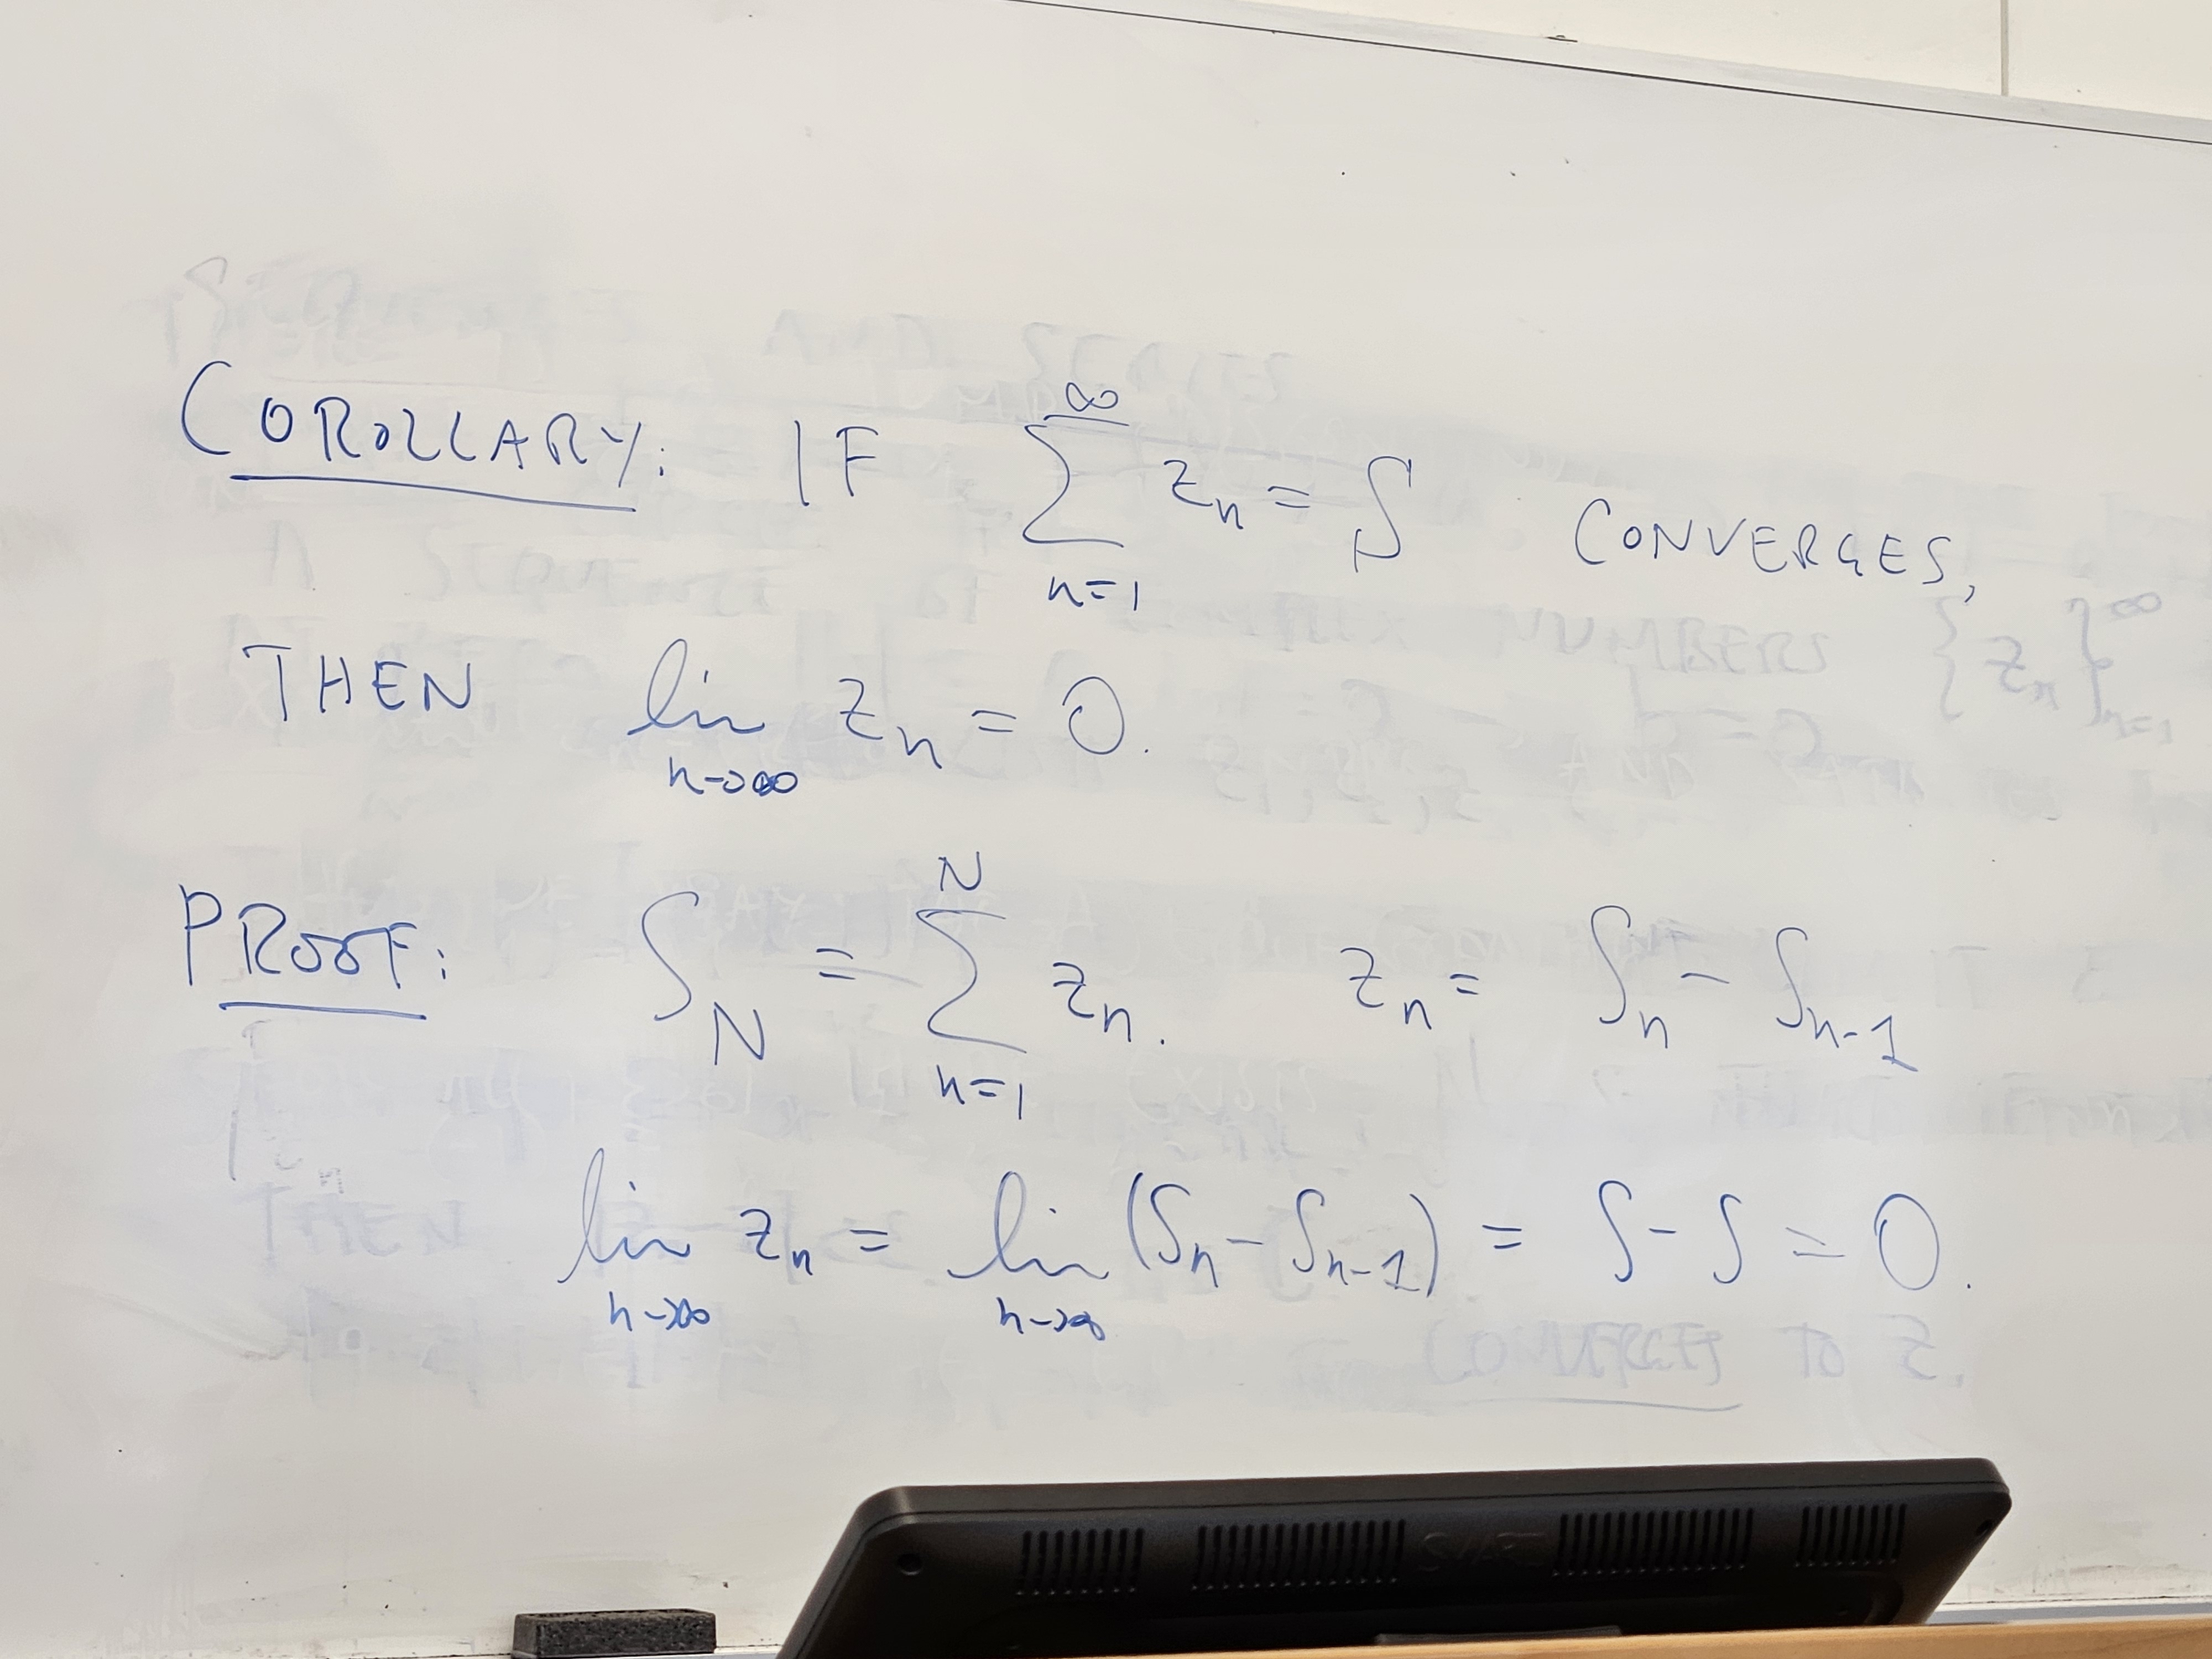 COROLLARY: IF ∑_{n=1}^{∞} z_n = S CONVERGES,
THEN lim_{n→∞} z_n = 0.
PROOF: S_N = ∑_{n=1}^{N} z_n. z_n = S_n - S_{n-1}
lim_{n→∞} z_n = lim_{n→∞} (S_n - S_{n-1}) = S - S = 0.